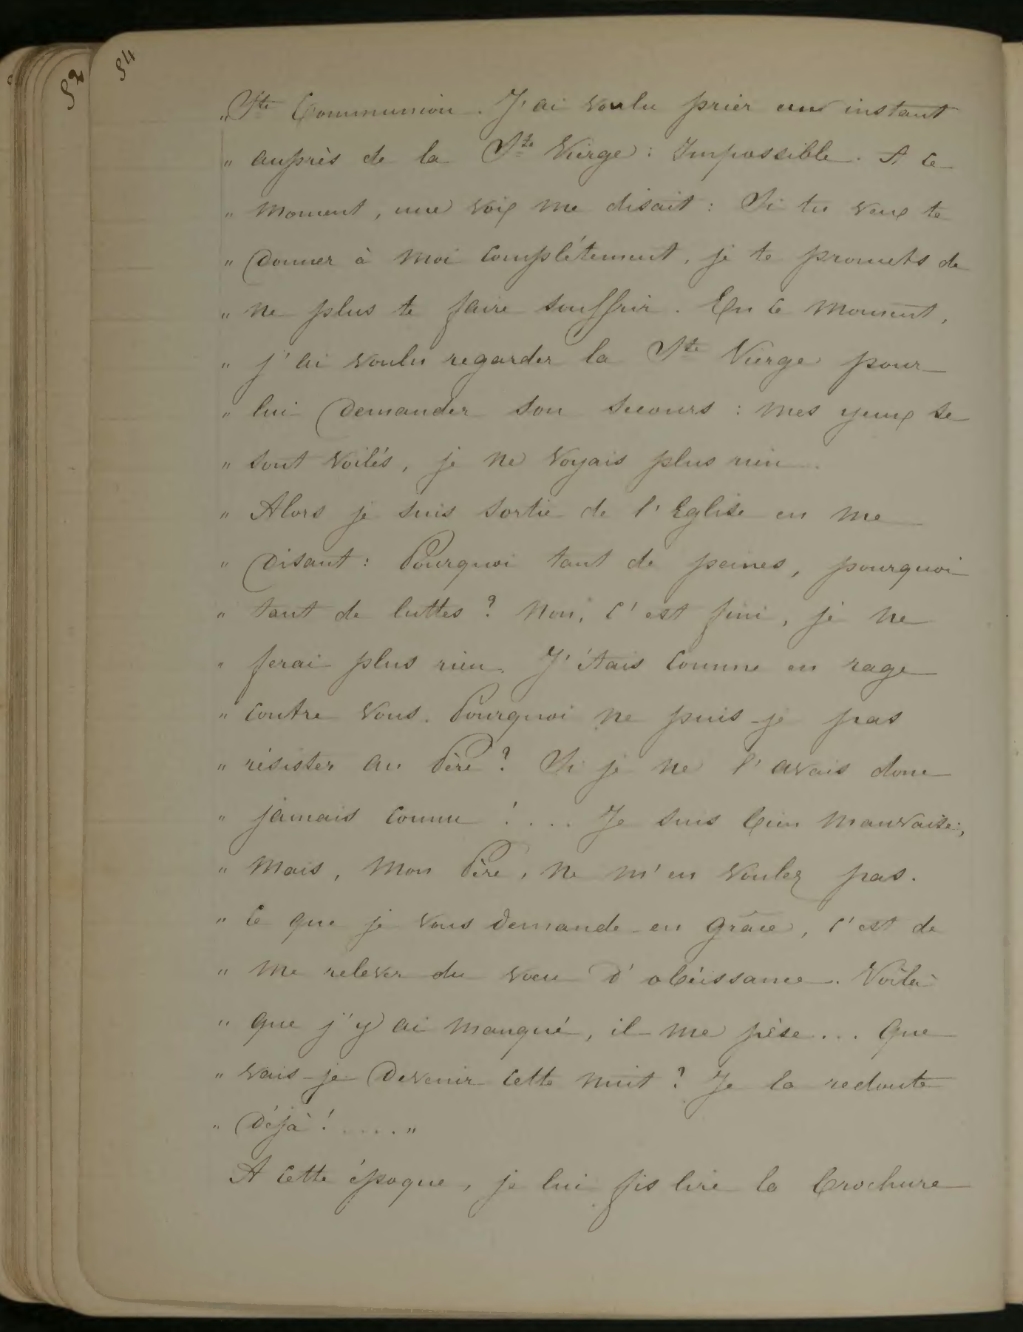 52
54
„ Ste Communion. J'ai voulu prier un instant
„ auprès de la Ste Vierge : Impossible. A ce
„ moment, une voix me disait : Si tu veux te
„ donner à moi complétement, je te promets de
„ ne plus te faire souffrir. En ce moment,
„ j'ai voulu regarder la Ste Vierge pour
„ lui demander son secours : mes yeux se
„ sont voilés, je ne voyais plus rien.
„ Alors je suis sortie de l'Eglise en me
„ disant : Pourquoi tant de peines, pourquoi
„ tant de luttes ? Non, c'est fini, je ne
„ ferai plus rien. J'étais comme en rage
„ contre vous. Pourquoi ne puis-je pas
„ résister au Père ? Si je ne l'avais donc
„ jamais connu ! .... Je suis bien mauvaise,
„ mais, mon Père, ne m'en voulez pas.
„ Ce que je vous demande en grâce, c'est de
„ me relever du voeu d'obéissance. Voilà
„ que j'y ai manqué, il me pèse... Que
„ vais-je devenir cette nuit ? Je la redoute
„ déjà ! ..... „
A cette époque, je lui fis lire la brochure